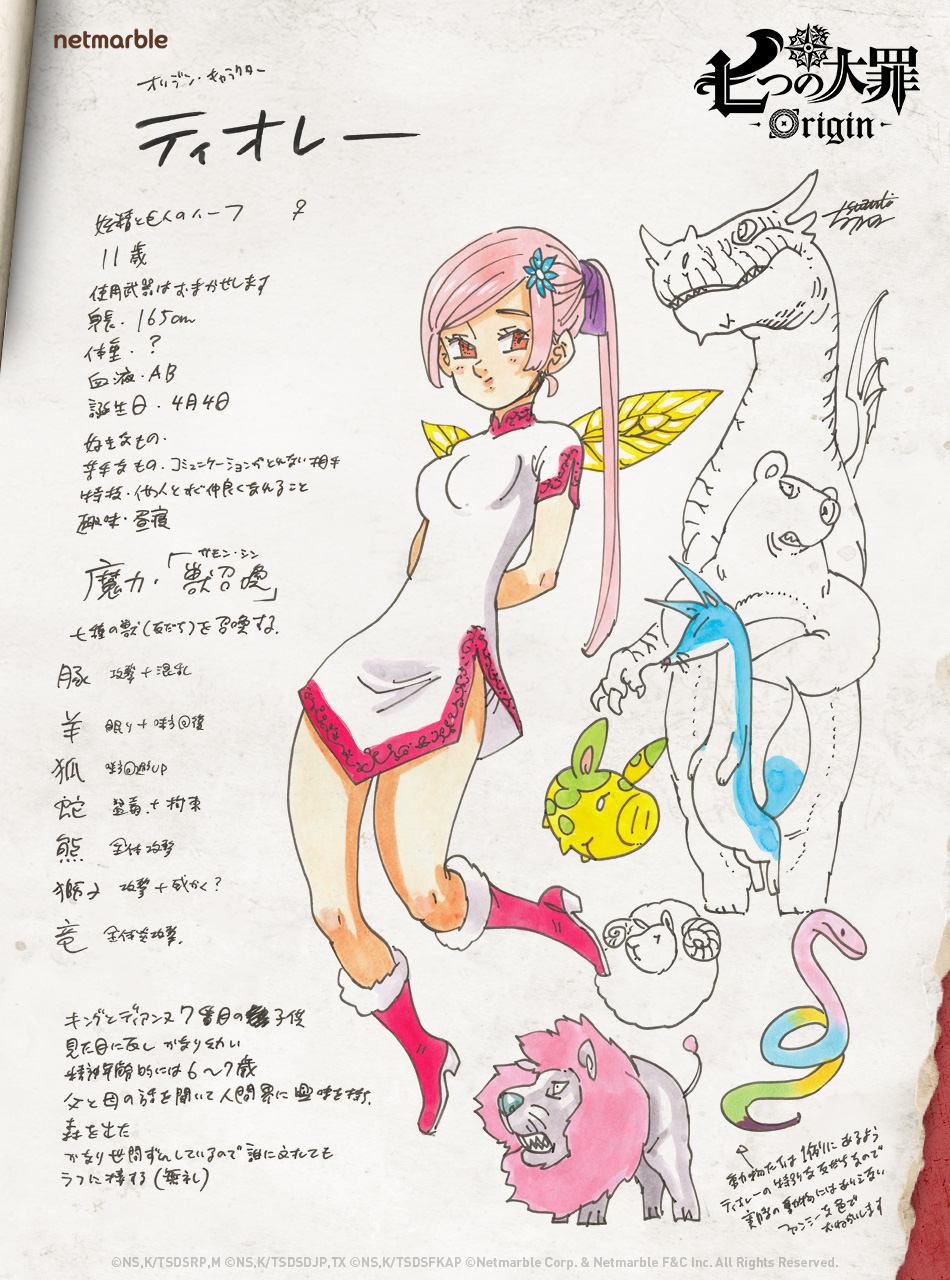 netmarble
七つの大罪
Origin
オリジン・キャラクター
ティオレー
妖精と巨人のハーフ ♀
11歳
使用武器はおまかせします
身長・165cm
体重・?
血液・AB
誕生日・4月4日
好きなもの・
苦手なもの・コミュニケーションがとれない相手
特技・他人とすぐ仲良くなれること
趣味・昼寝
サモン・シン
魔力・「獣召喚」
七種の獣(友だち)を召喚する.
豚 攻撃+混乱
羊 眠り+味方回復
狐 味方回避UP
蛇 猛毒+拘束
熊 全体攻撃
獅子 攻撃+いかく?
竜 全体炎攻撃.
キングとディアンヌ7番目の子供
見た目に反し かなり幼い
精神年齢的には6〜7歳
父と母の話を聞いて人間界に興味を持ち.
森を出た
かなり世間ずれしているので誰に対しても
ラフに接する(無礼)
動物たちは1例にあるよう
ティオレーの特別な友だちなので
実際の動物にはありえない
ファンシーな色で
おねがいします
©NS,K/TSDSRP,M ©NS,K/TSDSDJP,TX ©NS,K/TSDSFKAP ©Netmarble Corp. & Netmarble F&C Inc. All Rights Reserved.